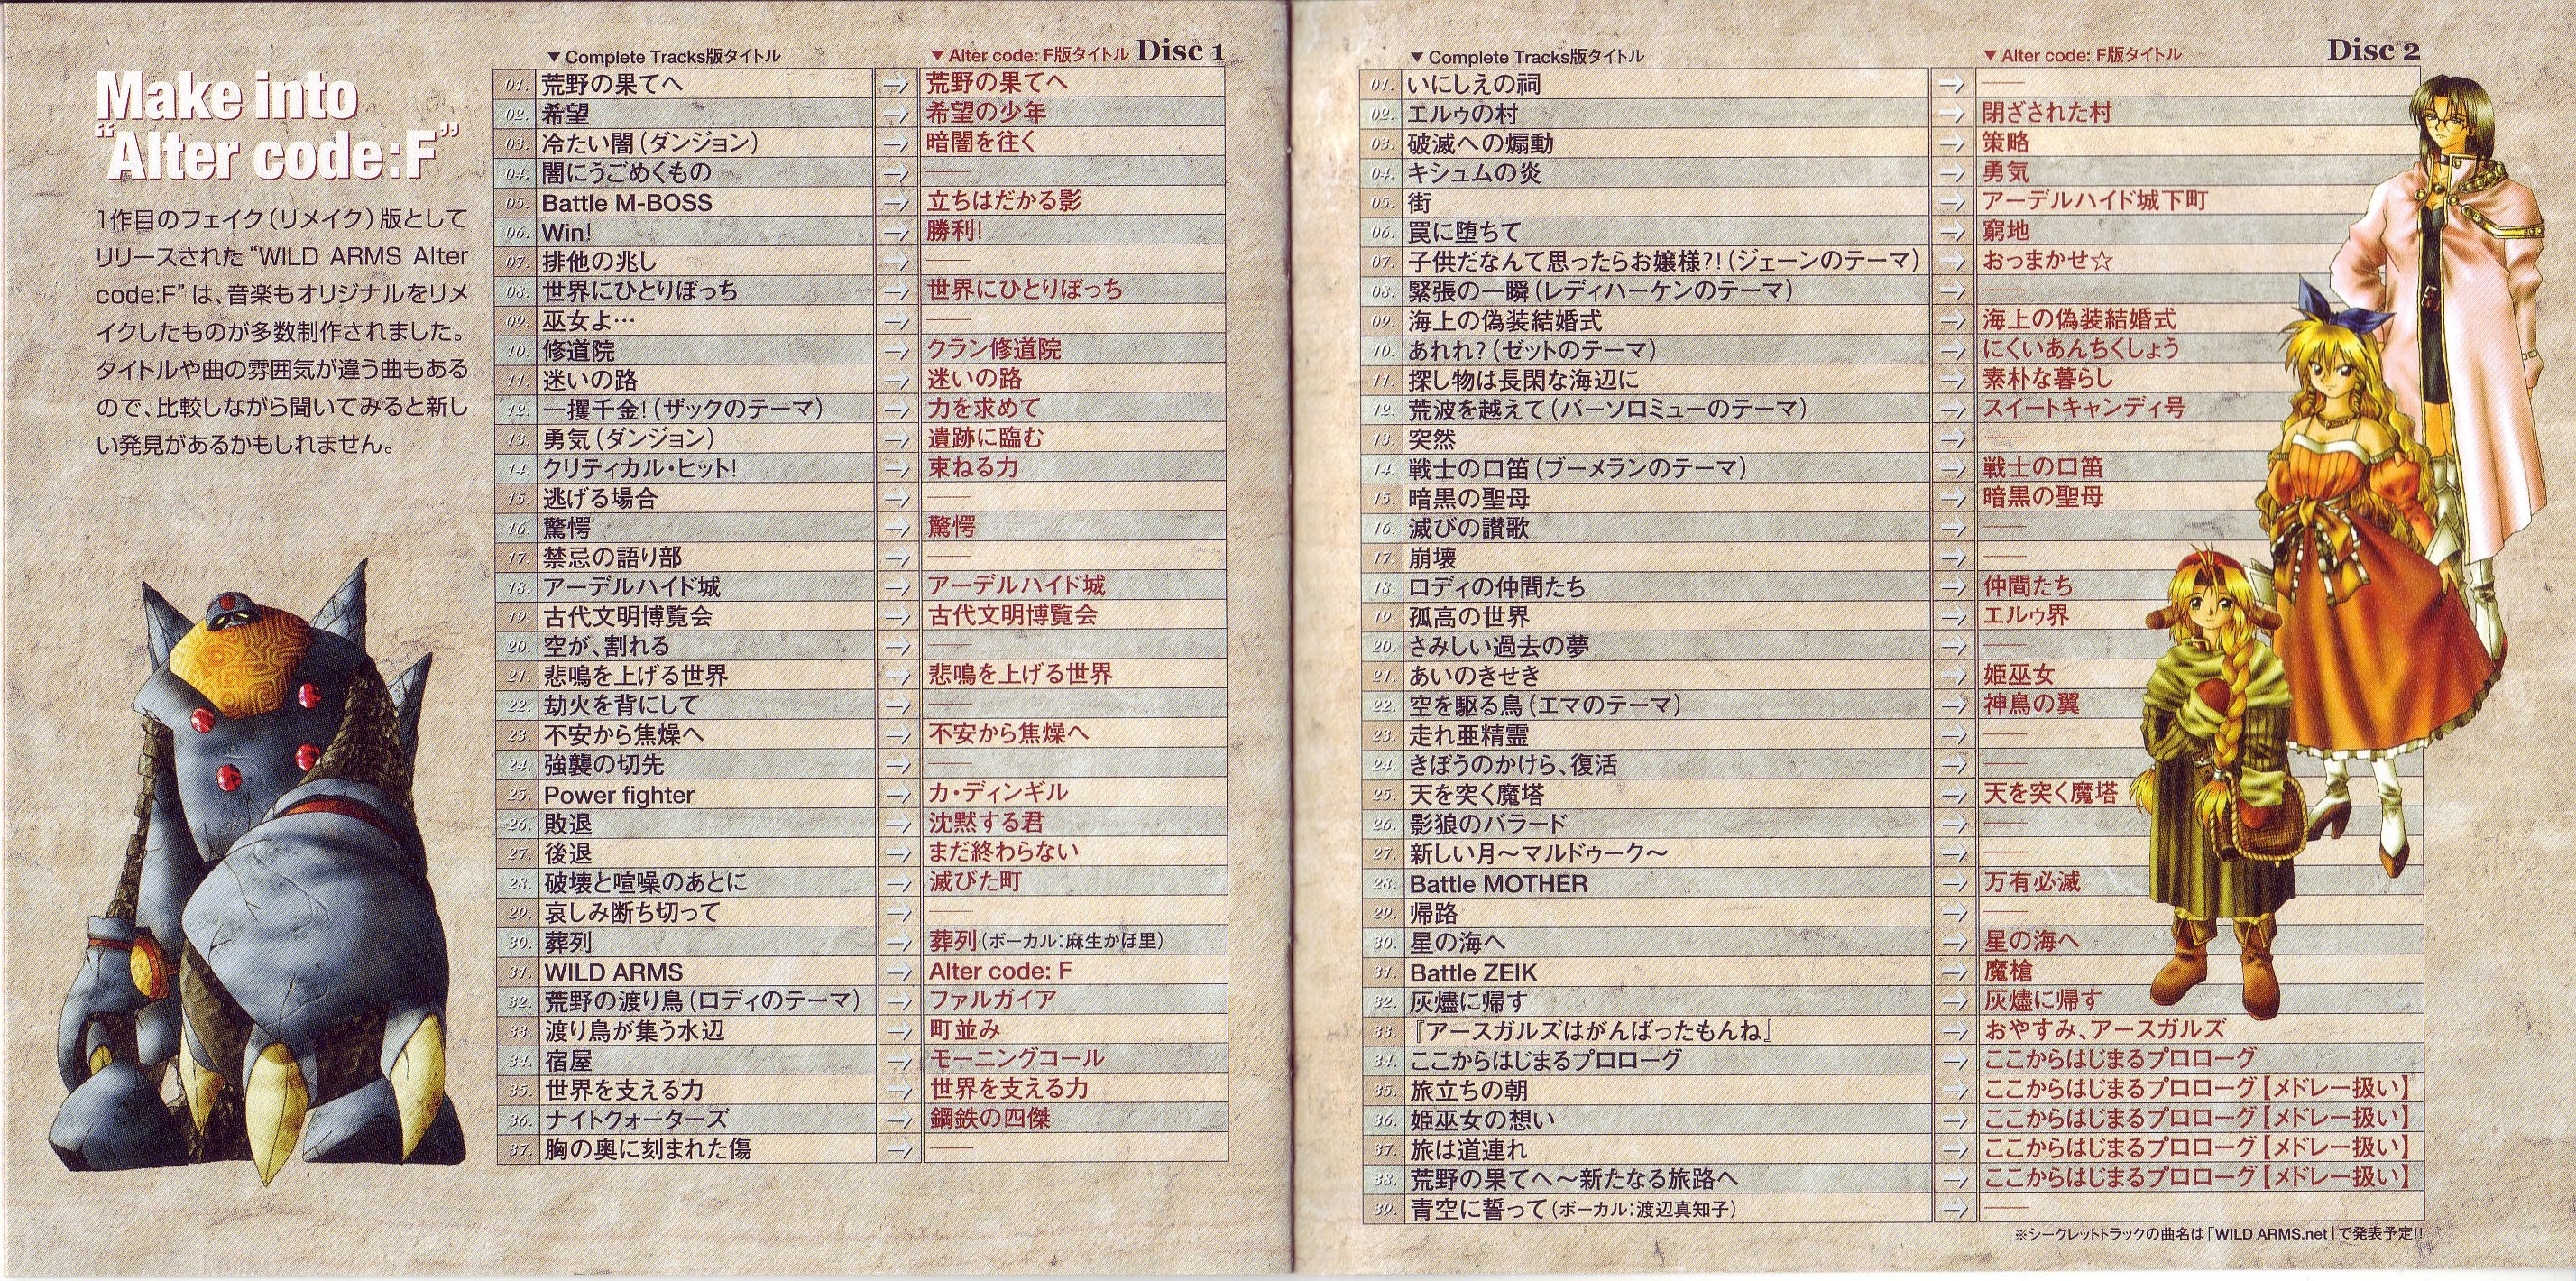 Make into
“Alter code:F”
1作目のフェイク（リメイク）版として
リリースされた“WILD ARMS Alter
code:F”は、音楽もオリジナルをリメ
イクしたものが多数制作されました。
タイトルや曲の雰囲気が違う曲もある
ので、比較しながら聞いてみると新し
い発見があるかもしれません。
▼Complete Tracks版タイトル ▼Alter code: F版タイトル Disc 1
01. 荒野の果てへ → 荒野の果てへ
02. 希望 → 希望の少年
03. 冷たい闇（ダンジョン） → 暗闇を往く
04. 闇にうごめくもの → ——
05. Battle M-BOSS → 立ちはだかる影
06. Win! → 勝利!
07. 排他の兆し → ——
08. 世界にひとりぼっち → 世界にひとりぼっち
09. 巫女よ… → ——
10. 修道院 → クラン修道院
11. 迷いの路 → 迷いの路
12. 一攫千金!（ザックのテーマ） → 力を求めて
13. 勇気（ダンジョン） → 遺跡に臨む
14. クリティカル・ヒット! → 束ねる力
15. 逃げる場合 → ——
16. 驚愕 → 驚愕
17. 禁忌の語り部 → ——
18. アーデルハイド城 → アーデルハイド城
19. 古代文明博覧会 → 古代文明博覧会
20. 空が、割れる → ——
21. 悲鳴を上げる世界 → 悲鳴を上げる世界
22. 劫火を背にして → ——
23. 不安から焦燥へ → 不安から焦燥へ
24. 強襲の切先 → ——
25. Power fighter → カ・ディンギル
26. 敗退 → 沈黙する君
27. 後退 → まだ終わらない
28. 破壊と喧噪のあとに → 滅びた町
29. 哀しみ断ち切って → ——
30. 葬列 → 葬列（ボーカル：麻生かほ里）
31. WILD ARMS → Alter code: F
32. 荒野の渡り鳥（ロディのテーマ） → ファルガイア
33. 渡り鳥が集う水辺 → 町並み
34. 宿屋 → モーニングコール
35. 世界を支える力 → 世界を支える力
36. ナイトクォーターズ → 鋼鉄の四傑
37. 胸の奥に刻まれた傷 → ——
▼Complete Tracks版タイトル ▼Alter code: F版タイトル Disc 2
01. いにしえの祠 → ——
02. エルゥの村 → 閉ざされた村
03. 破滅への煽動 → 策略
04. キシュムの炎 → 勇気
05. 街 → アーデルハイド城下町
06. 罠に堕ちて → 窮地
07. 子供だなんて思ったらお嬢様?!（ジェーンのテーマ） → おっまかせ☆
08. 緊張の一瞬（レディハーケンのテーマ） → ——
09. 海上の偽装結婚式 → 海上の偽装結婚式
10. あれれ?（ゼットのテーマ） → にくいあんちくしょう
11. 探し物は長閑な海辺に → 素朴な暮らし
12. 荒波を越えて（バーソロミューのテーマ） → スイートキャンディ号
13. 突然 → ——
14. 戦士の口笛（ブーメランのテーマ） → 戦士の口笛
15. 暗黒の聖母 → 暗黒の聖母
16. 滅びの讃歌 → ——
17. 崩壊 → ——
18. ロディの仲間たち → 仲間たち
19. 孤高の世界 → エルゥ界
20. さみしい過去の夢 → ——
21. あいのきせき → 姫巫女
22. 空を駆る鳥（エマのテーマ） → 神鳥の翼
23. 走れ亜精霊 → ——
24. きぼうのかけら、復活 → ——
25. 天を突く魔塔 → 天を突く魔塔
26. 影狼のバラード → ——
27. 新しい月〜マルドゥーク〜 → ——
28. Battle MOTHER → 万有必滅
29. 帰路 → ——
30. 星の海へ → 星の海へ
31. Battle ZEIK → 魔槍
32. 灰燼に帰す → 灰燼に帰す
33. 『アースガルズはがんばったもんね』 → おやすみ、アースガルズ
34. ここからはじまるプロローグ → ここからはじまるプロローグ
35. 旅立ちの朝 → ここからはじまるプロローグ【メドレー扱い】
36. 姫巫女の想い → ここからはじまるプロローグ【メドレー扱い】
37. 旅は道連れ → ここからはじまるプロローグ【メドレー扱い】
38. 荒野の果てへ〜新たなる旅路へ → ここからはじまるプロローグ【メドレー扱い】
39. 青空に誓って（ボーカル：渡辺真知子） → ——
※シークレットトラックの曲名は「WILD ARMS.net」で発表予定!!